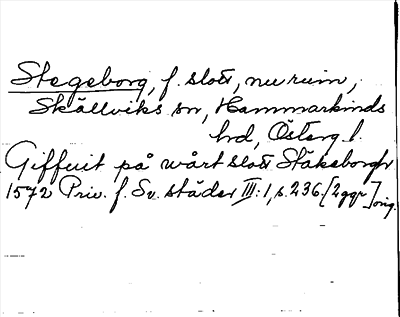 Stegeborg, f. slott, nu ruin,
Skällviks sn, Hammarkinds
hd, Österg. l.
Giffuit på wårt slott Stäkeborgh
1572 Priv. f. Sv. städer III:1, s. 236. [2 ggr] orig.